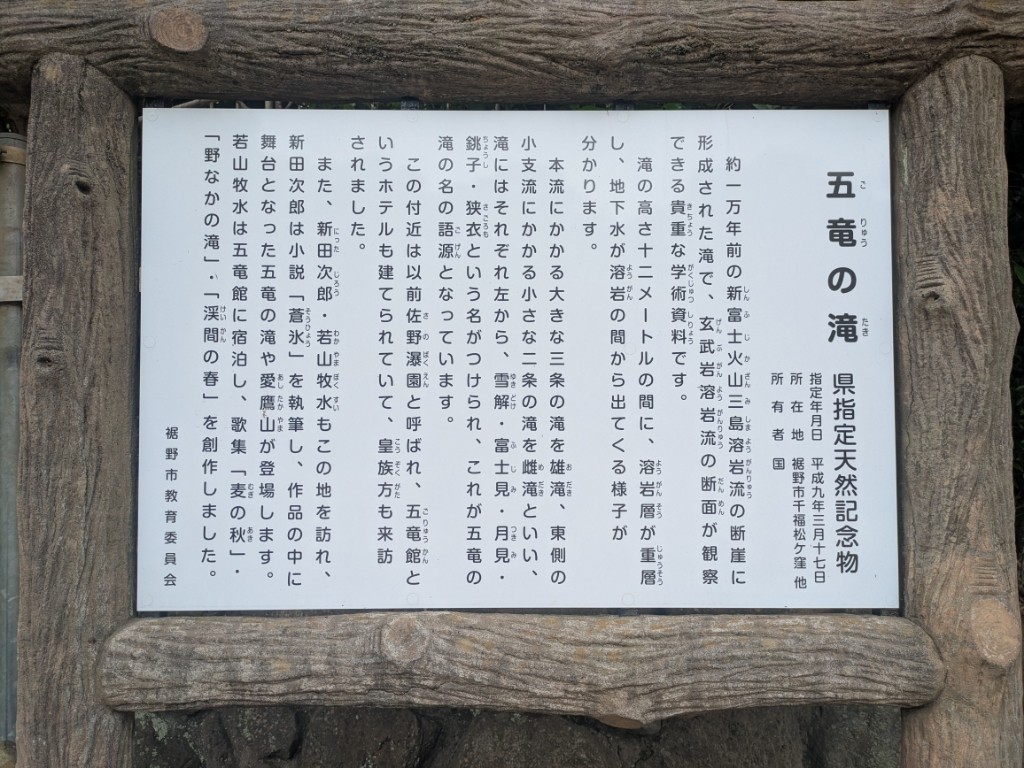 五竜の滝
県指定天然記念物
指定年月日 平成九年三月十七日
所在地 裾野市千福松ケ窪他
所有者 国
約一万年前の新富士火山三島溶岩流の断崖に
形成された滝で、玄武岩溶岩流の断面が観察
できる貴重な学術資料です。
滝の高さ十二メートルの間に、溶岩層が重層
し、地下水が溶岩の間から出てくる様子が
分かります。
本流にかかる大きな三条の滝を雄滝、東側の
小支流にかかる小さな二条の滝を雌滝といい、
滝にはそれぞれ左から、雪解・富士見・月見・
銚子・狭衣という名がつけられ、これが五竜の
滝の名の語源となっています。
この付近は以前佐野瀑園と呼ばれ、五竜館と
いうホテルも建てられていて、皇族方も来訪
されました。
また、新田次郎・若山牧水もこの地を訪れ、
新田次郎は小説「蒼氷」を執筆し、作品の中に
舞台となった五竜の滝や愛鷹山が登場します。
若山牧水は五竜館に宿泊し、歌集「麦の秋」・
「野なかの滝」・「渓間の春」を創作しました。
裾野市教育委員会